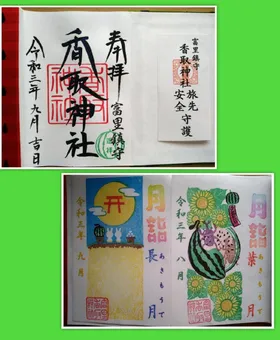 奉拝
富里鎮守
香取神社
令和三年九月吉日
富里鎮守
香取神社
旅先安全守護
月詣
つきもうで
長月
令和三年 九月
月詣
つきもうで
葉月
令和三年 八月